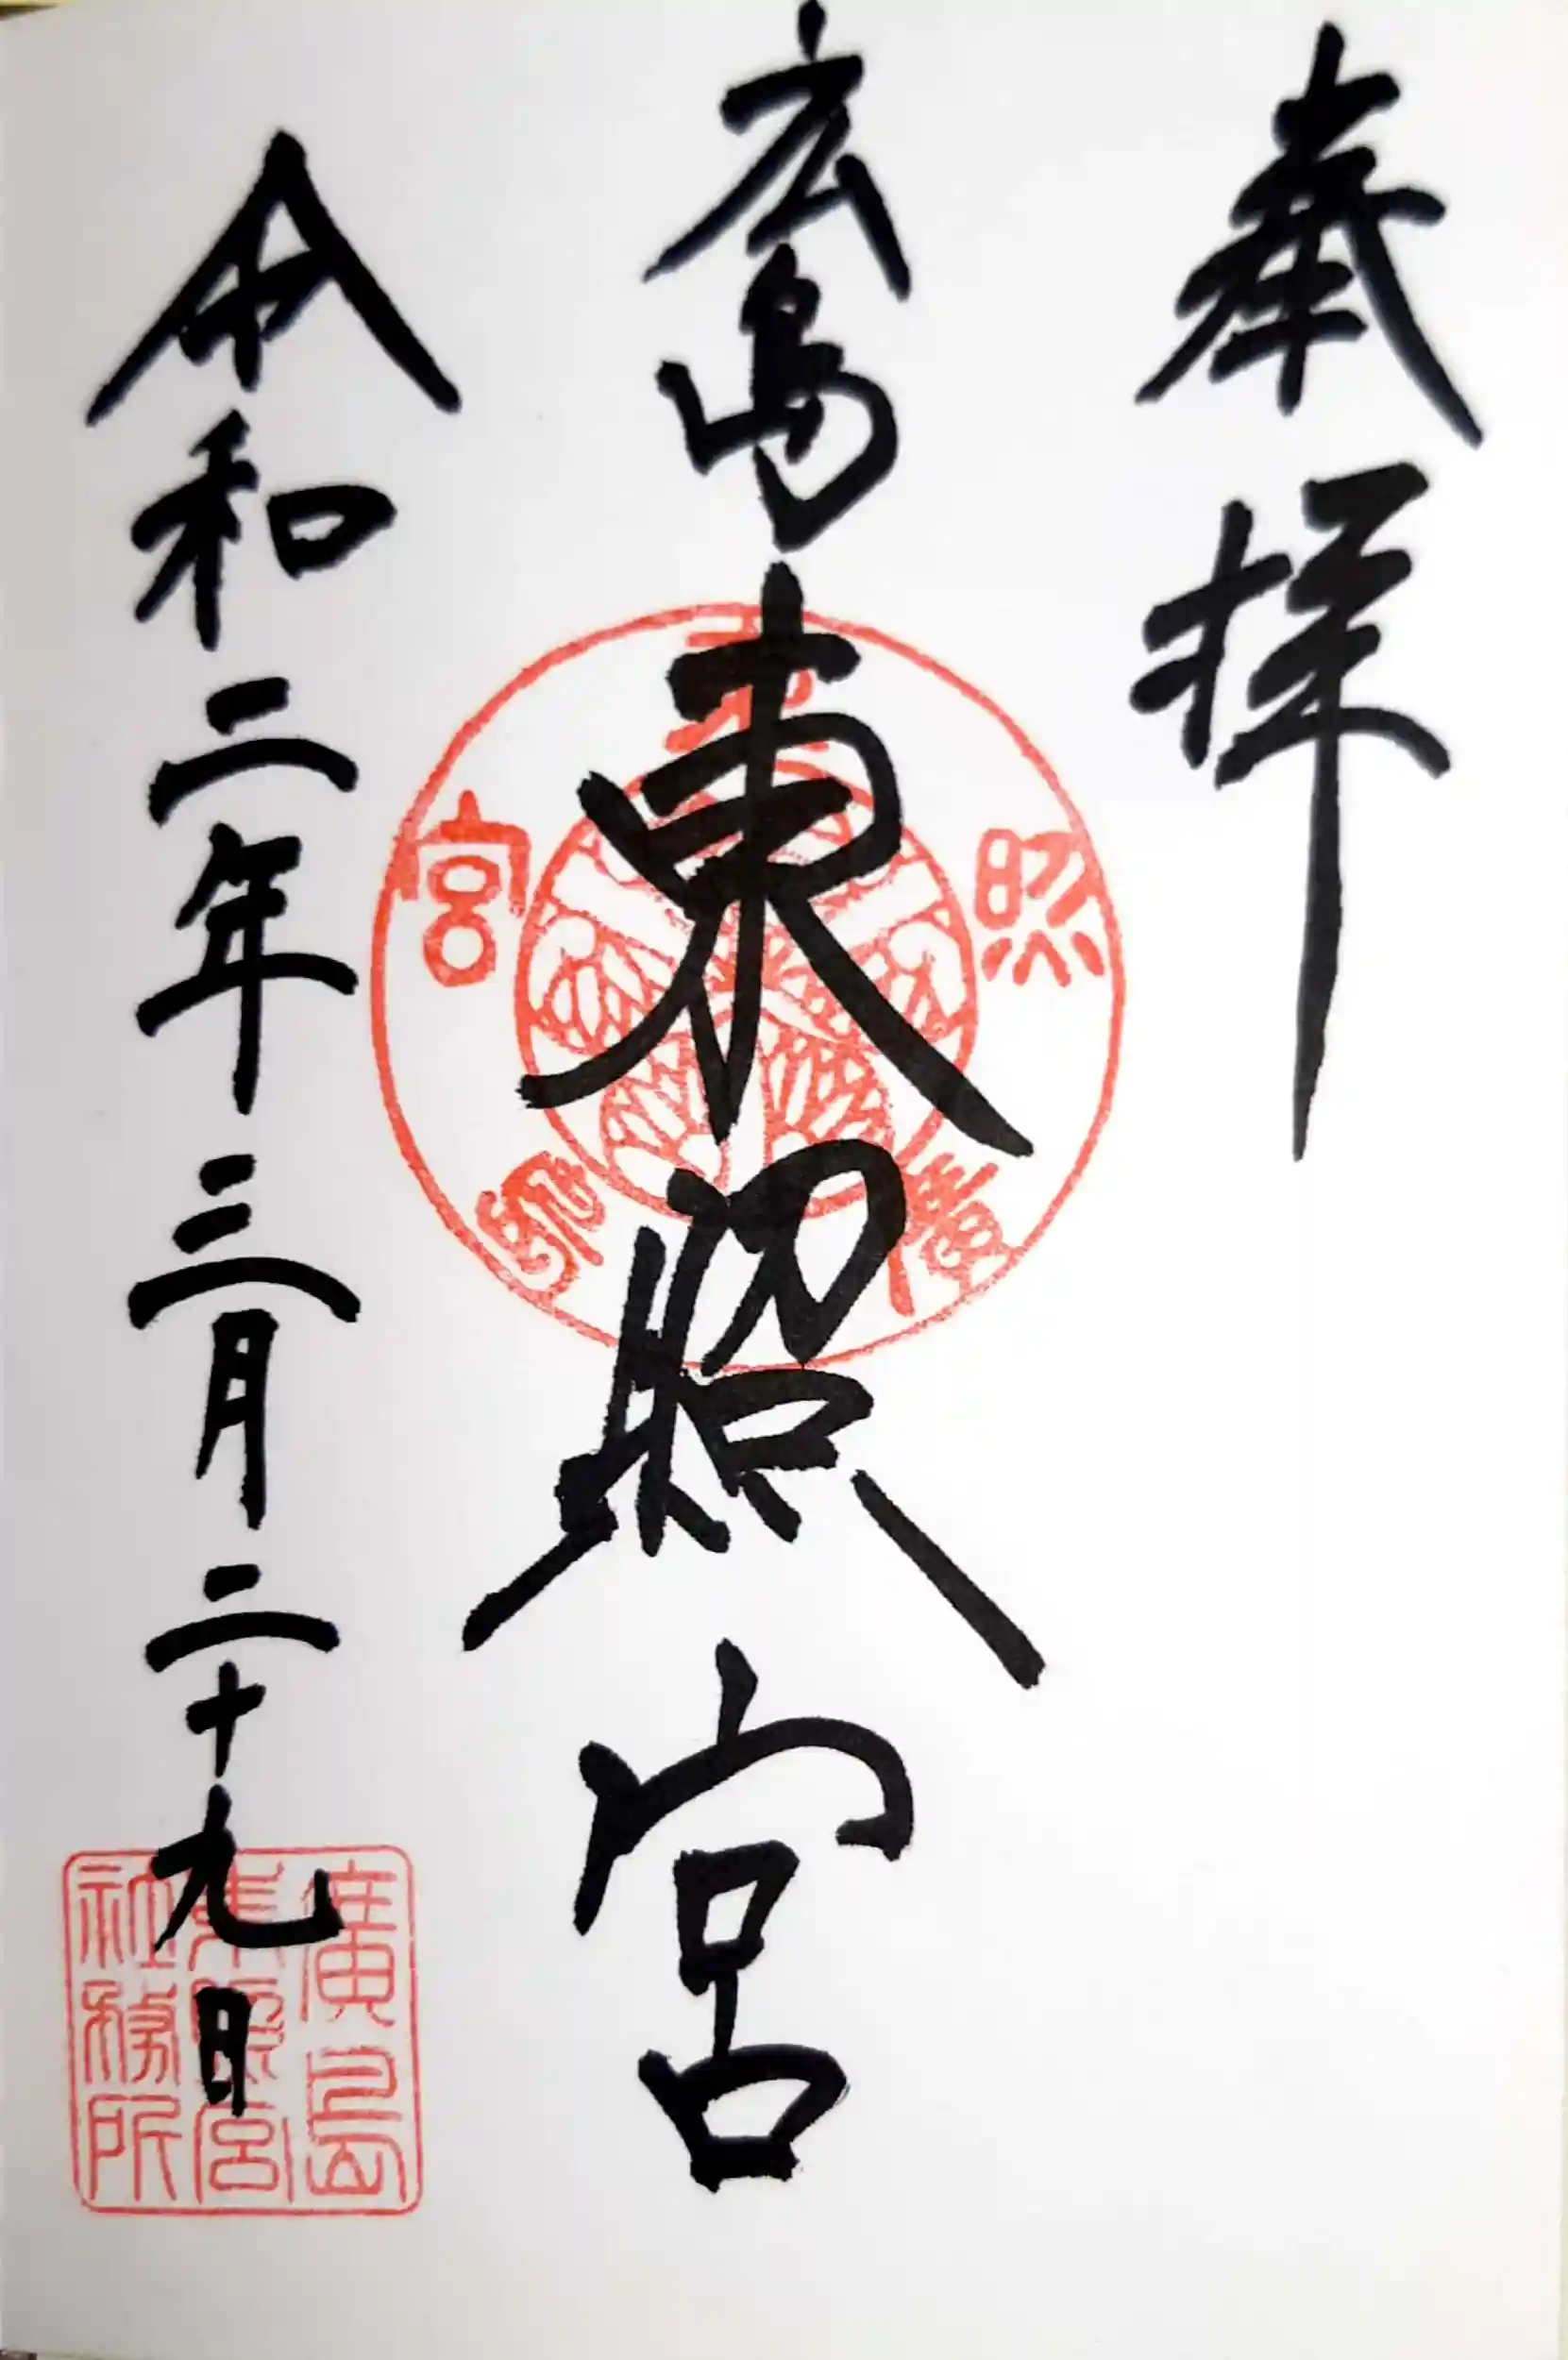 奉拝
広島東照宮
令和二年三月二十九日
東照宮廣島
廣島
東照宮
社務所